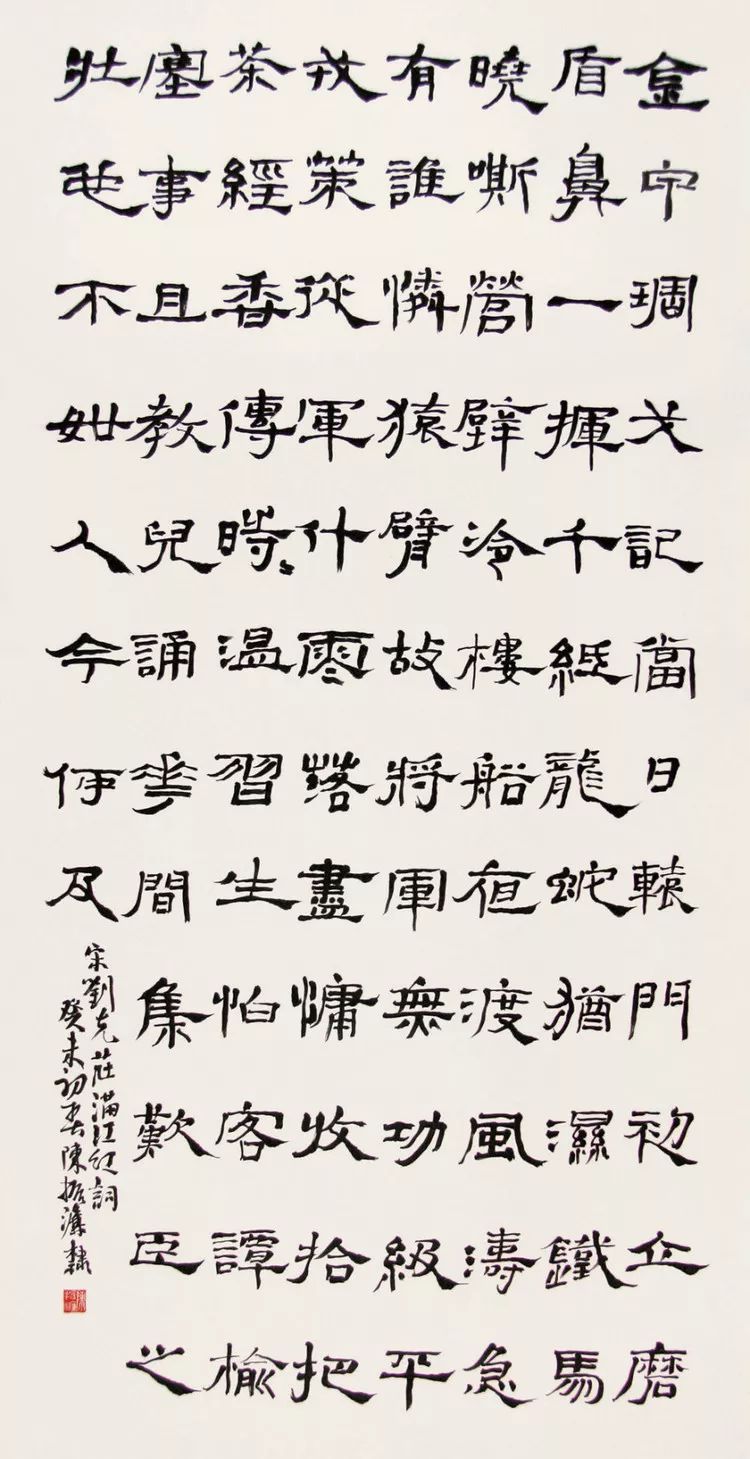 金甲琱戈記當日轅門初立磨
盾鼻一揮千紙龍蛇猶濕鐵馬
曉嘶營壁冷樓船夜渡風濤急
有誰憐猿臂故將軍無功級平
戎策從軍什零落盡慵收拾把
茶經香傳時〻溫習生怕客譚榆
塞事且教兒誦花間集歎臣之
壯也不如人今何及
宋劉克莊滿江紅詞
癸未初春陳振濂隸